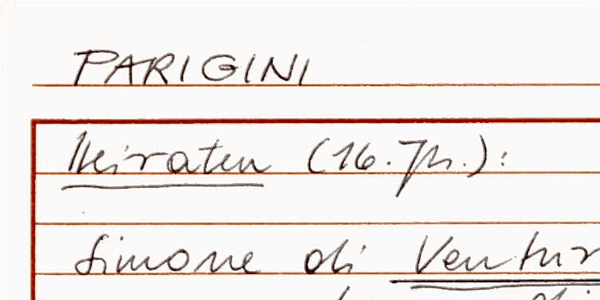 PARIGINI
Heiraten (16. Jh.):
Simone di Ventur